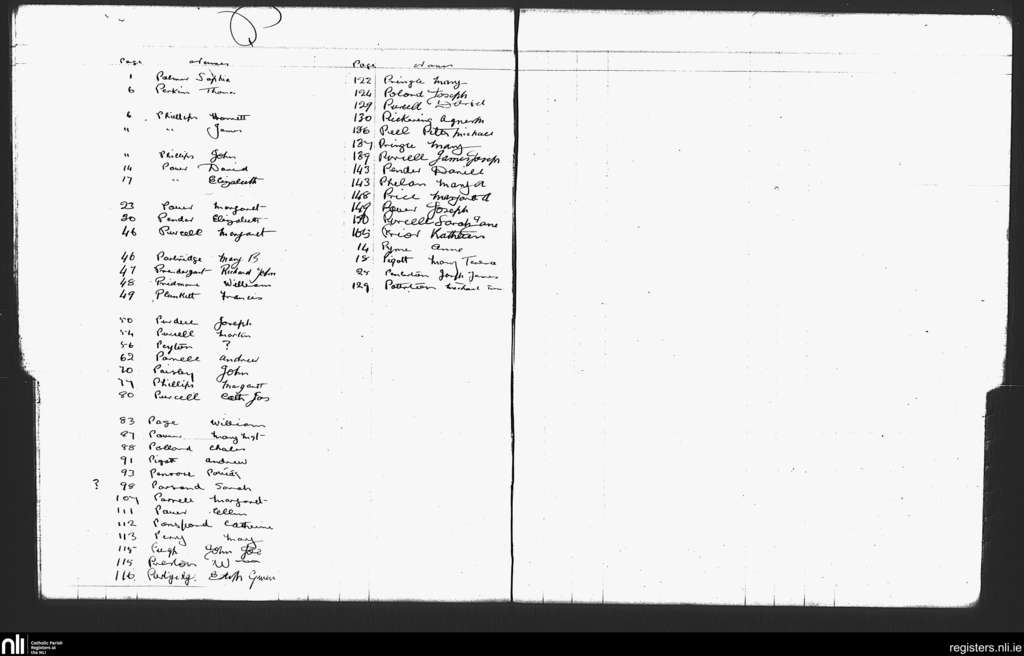 P
Page Names
1 Palmer Sophia
6 Perkin Thomas
6 Phillips Harriett
" " James
" Phillips John
14 Power David
17 " Elizabeth
23 Power Margaret
30 Pender Elizabeth
46 Purcell Margaret
46 Partridge Mary B
47 Prendergast Richard John
48 Pridmore William
49 Plunkett Francis
50 Purdue Joseph
54 Purcell Martin
56 Peyton ?
62 Parnell Andrew
70 Paisley John
77 Phillips Margaret
80 Purcell Cath Jos
83 Page William
87 Power Mary Mgt
88 Polland Charles
91 Pigott Andrew
93 Penrose
? 98 Sarah
107 Parnell Margaret
111 Power Ellen
112 Catherine
113 Perry Mary
115 Pugh John Jos
115 Preston Wm
116 Edith Gwen
Page Names
122 Pringle Mary
124 Poland Joseph
129 Purcell David
130 Pickering Agnes M
136 Peel Peter Michael
137 Pringle Mary
139 Purcell James Joseph
143 Pender Daniel
143 Phelan Mary A
148 Price Margaret M
149 Power Joseph
150 Purcell Sarah Jane
165 Prior Kathleen
14 Pyne Anne
18 Pigott Mary Terence
Joseph James
129 Patterson Michael
nli Catholic Parish
Registers at
the NLI
registers.nli.ie